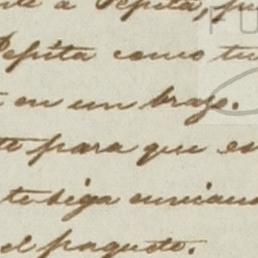 a Pepita,
Pepita como tu
en un brazo.
te para que es
te siga enviand
el paquete.